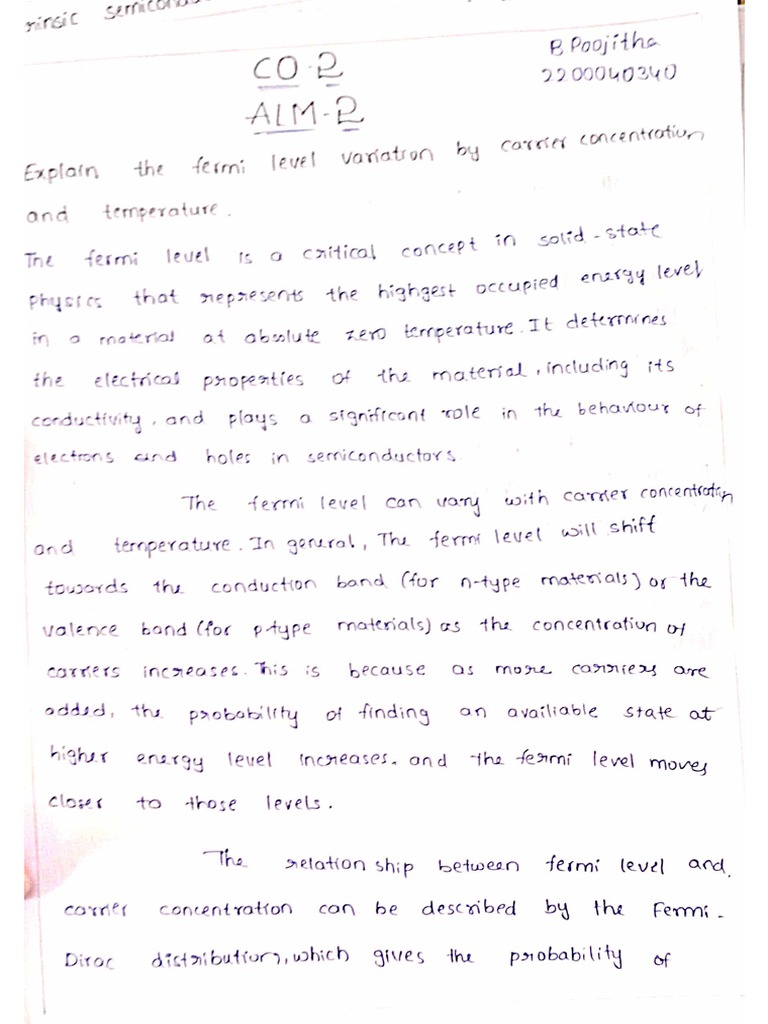 rinsic
B Poojitha
CO-2
2200040340
ALM-2
Explain the fermi level variation by carrier concentration
and temperature.
The fermi level is a critical concept in solid-state
physics that represents the highgest occupied energy level
in a material at absolute zero temperature. It determines
the electrical properties of the material, including its
conductivity, and plays a significant role in the behaviour of
electrons and holes in semiconductors.
The fermi level can vary with carrier concentration
and temperature. In general, The fermi level will shift
towards the conduction band (for n-type materials) or the
valence band (for p-type materials) as the concentration of
carriers increases. This is because as more carriers are
added, the probability of finding an availiable state at
higher energy level increases. and the fermi level moves
closer to those levels.
The relation ship between fermi level and
carrier concentration can be described by the Fermi-
Dirac distribution, which gives the probability of